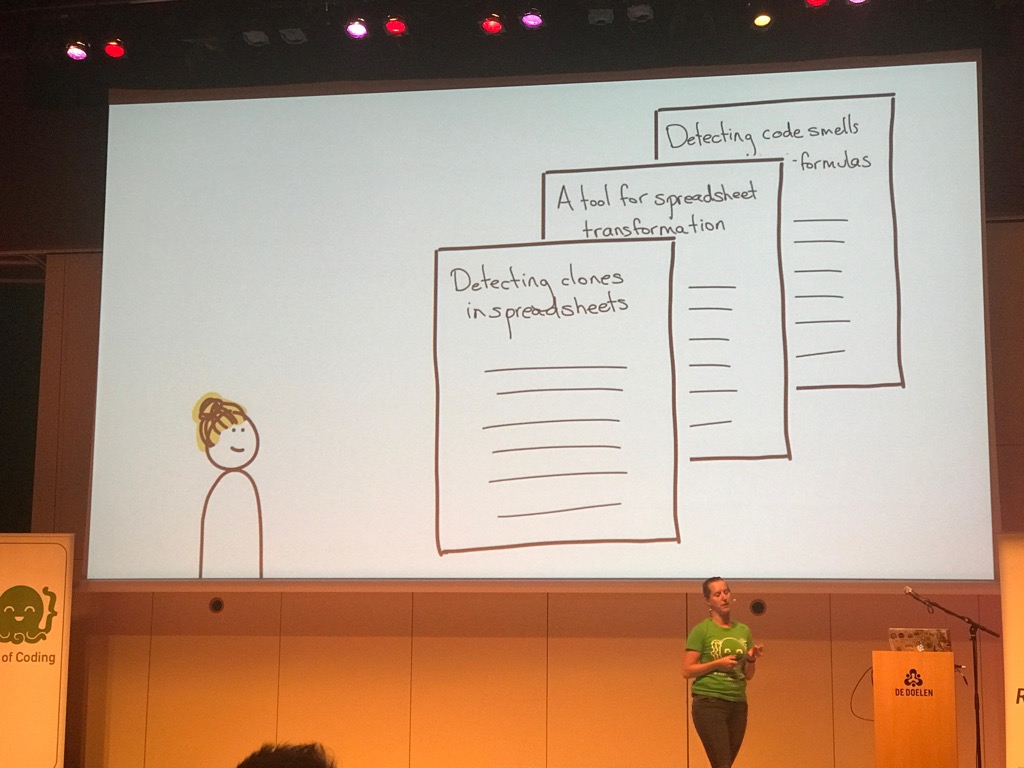 Detecting code smells
-formulas
A tool for spreadsheet
transformation
Detecting clones
in spreadsheets
of Coding
DE DOELEN
R